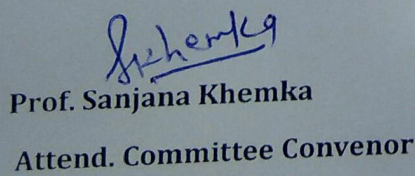 Skhemka
Prof. Sanjana Khemka
Attend. Committee Convenor